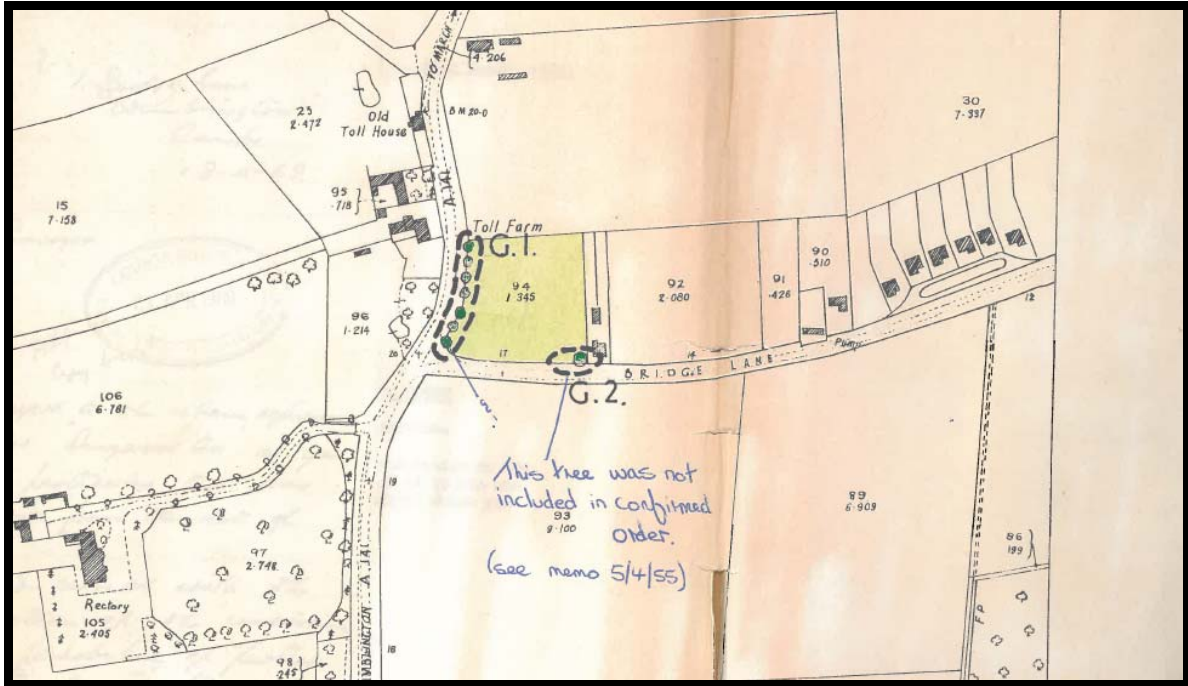 TO MARCH
4.206
23
2.472
Old
Toll House
B M 20.0
30
7.337
15
7.158
95
.718
A.141
Toll Farm
G.1.
94
1.345
92
2.080
91
.426
90
.510
96
1.214
20
17
14
12
Pump
BRIDGE LANE
G.2.
106
6.781
This tree was not
included in confirmed
order.
(see memo 5/4/55)
19
93
9.100
89
6.909
86
.199
97
2.748
Rectory
105
2.405
98
.245
IMBLINGTON A.141
18
F P